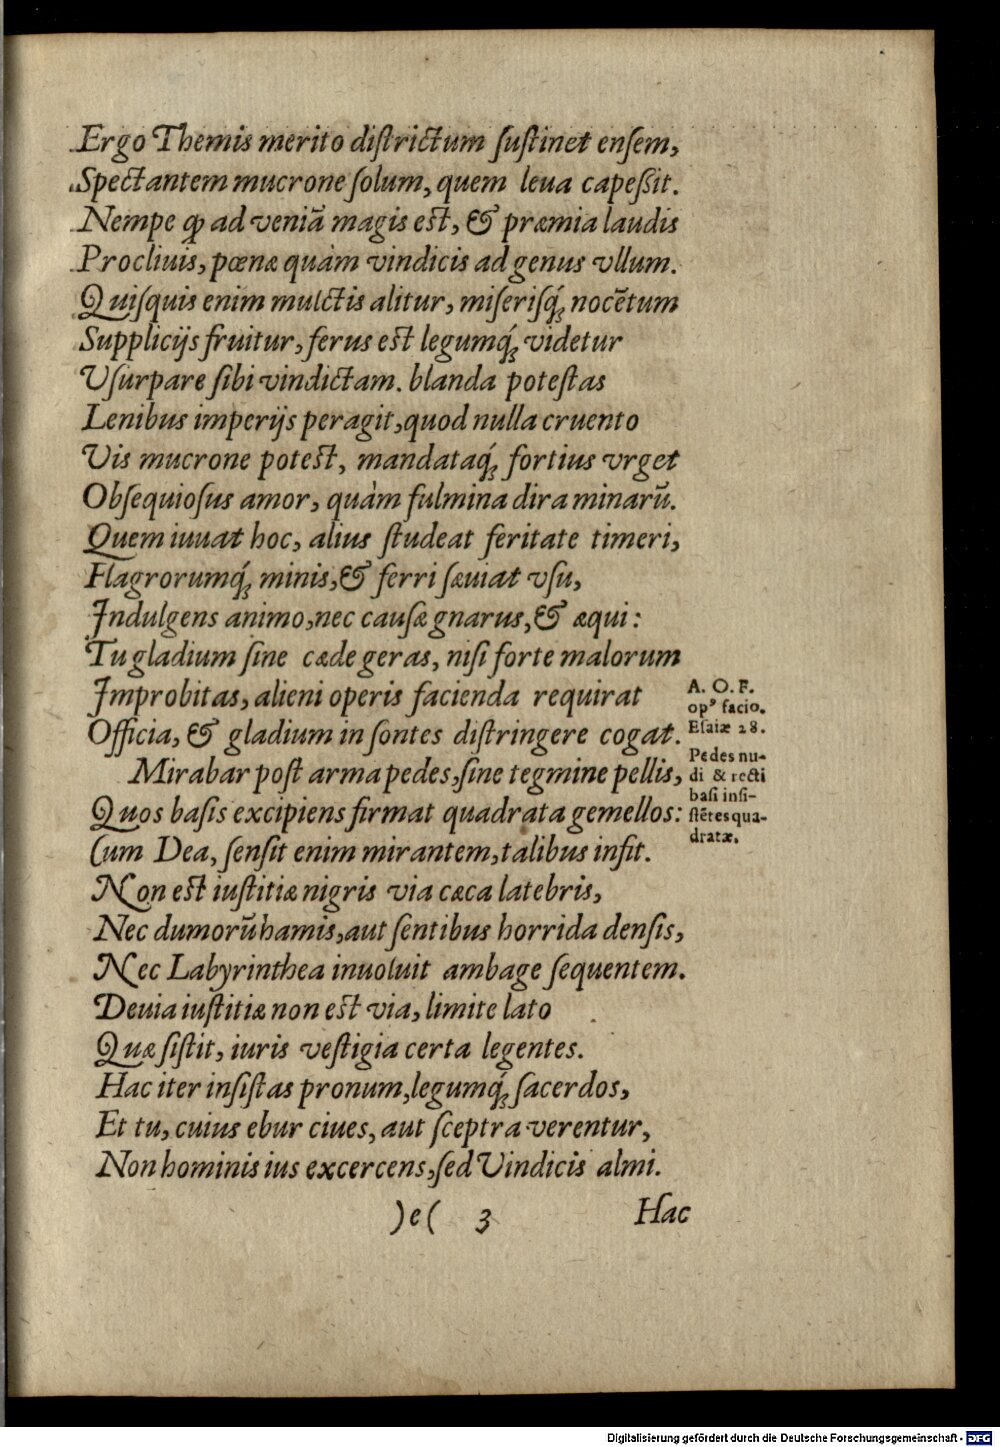 Ergo Themis merito diſtrictum ſuſtinet enſem,
Spectantem mucrone ſolum, quem leua capeſſit.
Nempe ꝙ ad veniã magis est, & præmia laudis
Procliuis, pœnæ quàm vindicis ad genus vllum.
Quiſquis enim mulctis alitur, miſeriſq́ꝫ nocẽtum
Supplicijs fruitur, ferus est legumq́ꝫ videtur
Vſurpare ſibi vindictam. blanda poteſtas
Lenibus imperijs peragit, quod nulla cruento
Vis mucrone potest, mandataq́ꝫ fortius vrget
Obſequioſus amor, quàm fulmina dira minarũ.
Quem iuuat hoc, alius ſtudeat feritate timeri,
Flagrorumq́ꝫ minis, & ferri ſæuiat vſu,
Indulgens animo, nec cauſæ gnarus, & æqui:
Tu gladium ſine cæde geras, niſi forte malorum
Improbitas, alieni operis facienda requirat
Officia, & gladium in ſontes diſtringere cogat.
A. O. F.
opꝰ facio.
Eſaiæ 28.
Mirabar poſt arma pedes, ſine tegmine pellis,
Quos baſis excipiens firmat quadrata gemellos:
Cum Dea, ſenſit enim mirantem, talibus infit.
Pedes nu-
di & recti
baſi inſi-
ſtẽtes qua-
dratæ.
Non est iuſtitiæ nigris via cæca latebris,
Nec dumorũ hamis, aut ſentibus horrida denſis,
Nec Labyrinthea inuoluit ambage ſequentem.
Deuia iuſtitiæ non est via, limite lato
Quæ ſiſtit, iuris veſtigia certa legentes.
Hac iter inſiſtas pronum, legumq́ꝫ ſacerdos,
Et tu, cuius ebur ciues, aut ſceptra verentur,
Non hominis ius excercens, ſed Vindicis almi.
)e( 3 Hac
Digitalisierung gefördert durch die Deutsche Forschungsgemeinschaft - DFG